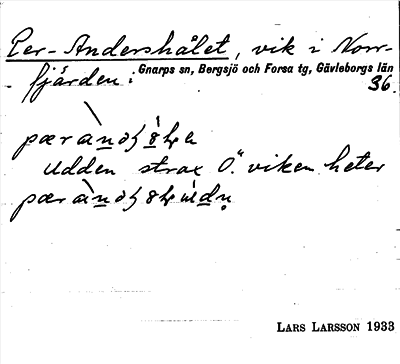 Per-Andershålet, vik i Norr-
fjärden: Gnarps sn, Bergsjö och Forsa tg, Gävleborgs län
36.
Udden strax Ö. viken heter
LARS LARSSON 1933